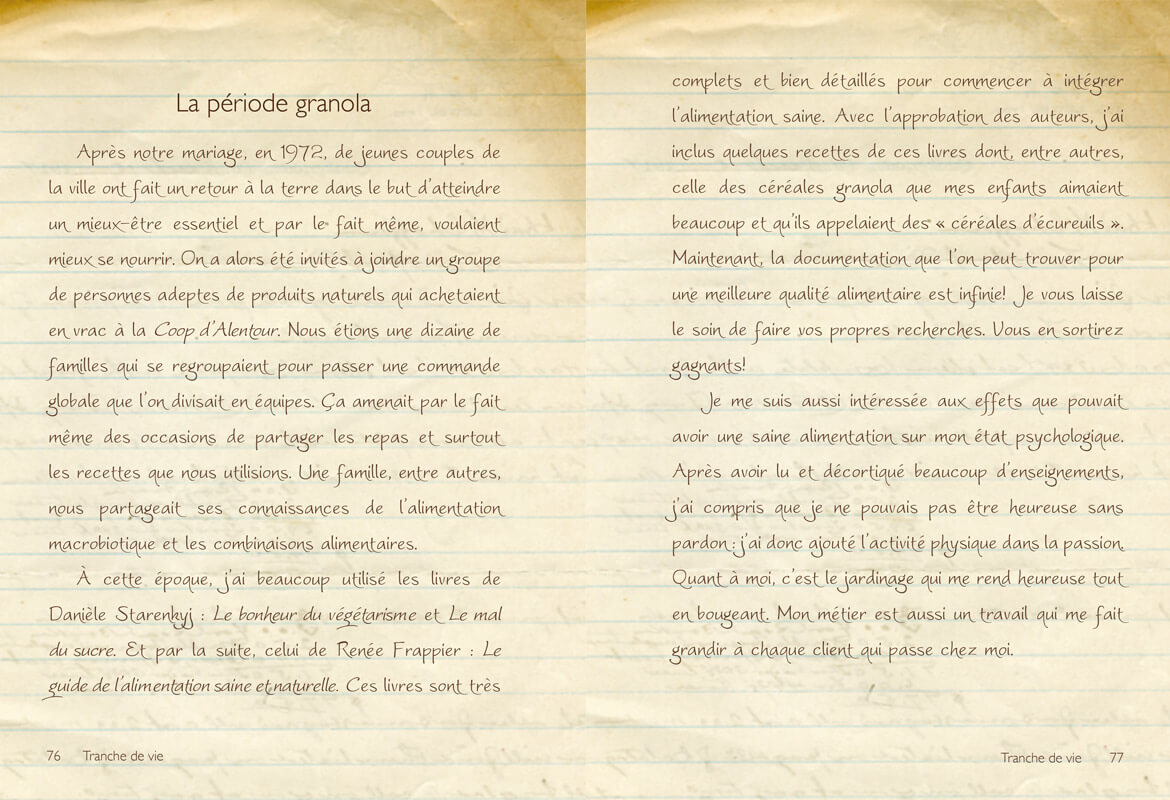 La période granola
Après notre mariage, en 1972, de jeunes couples de
la ville ont fait un retour à la terre dans le but d'atteindre
un mieux-être essentiel et par le fait même, voulaient
mieux se nourrir. On a alors été invités à joindre un groupe
de personnes adeptes de produits naturels qui achetaient
en vrac à la Coop d'Alentour. Nous étions une dizaine de
familles qui se regroupaient pour passer une commande
globale que l'on divisait en équipes. Ça amenait par le fait
même des occasions de partager les repas et surtout
les recettes que nous utilisions. Une famille, entre autres,
nous partageait ses connaissances de l'alimentation
macrobiotique et les combinaisons alimentaires.
À cette époque, j'ai beaucoup utilisé les livres de
Danièle Starenkyj : Le bonheur du végétarisme et Le mal
du sucre. Et par la suite, celui de Renée Frappier : Le
guide de l'alimentation saine et naturelle. Ces livres sont très
76 Tranche de vie
complets et bien détaillés pour commencer à intégrer
l'alimentation saine. Avec l'approbation des auteurs, j'ai
inclus quelques recettes de ces livres dont, entre autres,
celle des céréales granola que mes enfants aimaient
beaucoup et qu'ils appelaient des « céréales d'écureuils ».
Maintenant, la documentation que l'on peut trouver pour
une meilleure qualité alimentaire est infinie! Je vous laisse
le soin de faire vos propres recherches. Vous en sortirez
gagnants!
Je me suis aussi intéressée aux effets que pouvait
avoir une saine alimentation sur mon état psychologique.
Après avoir lu et décortiqué beaucoup d'enseignements,
j'ai compris que je ne pouvais pas être heureuse sans
pardon : j'ai donc ajouté l'activité physique dans la passion.
Quant à moi, c'est le jardinage qui me rend heureuse tout
en bougeant. Mon métier est aussi un travail qui me fait
grandir à chaque client qui passe chez moi.
Tranche de vie 77